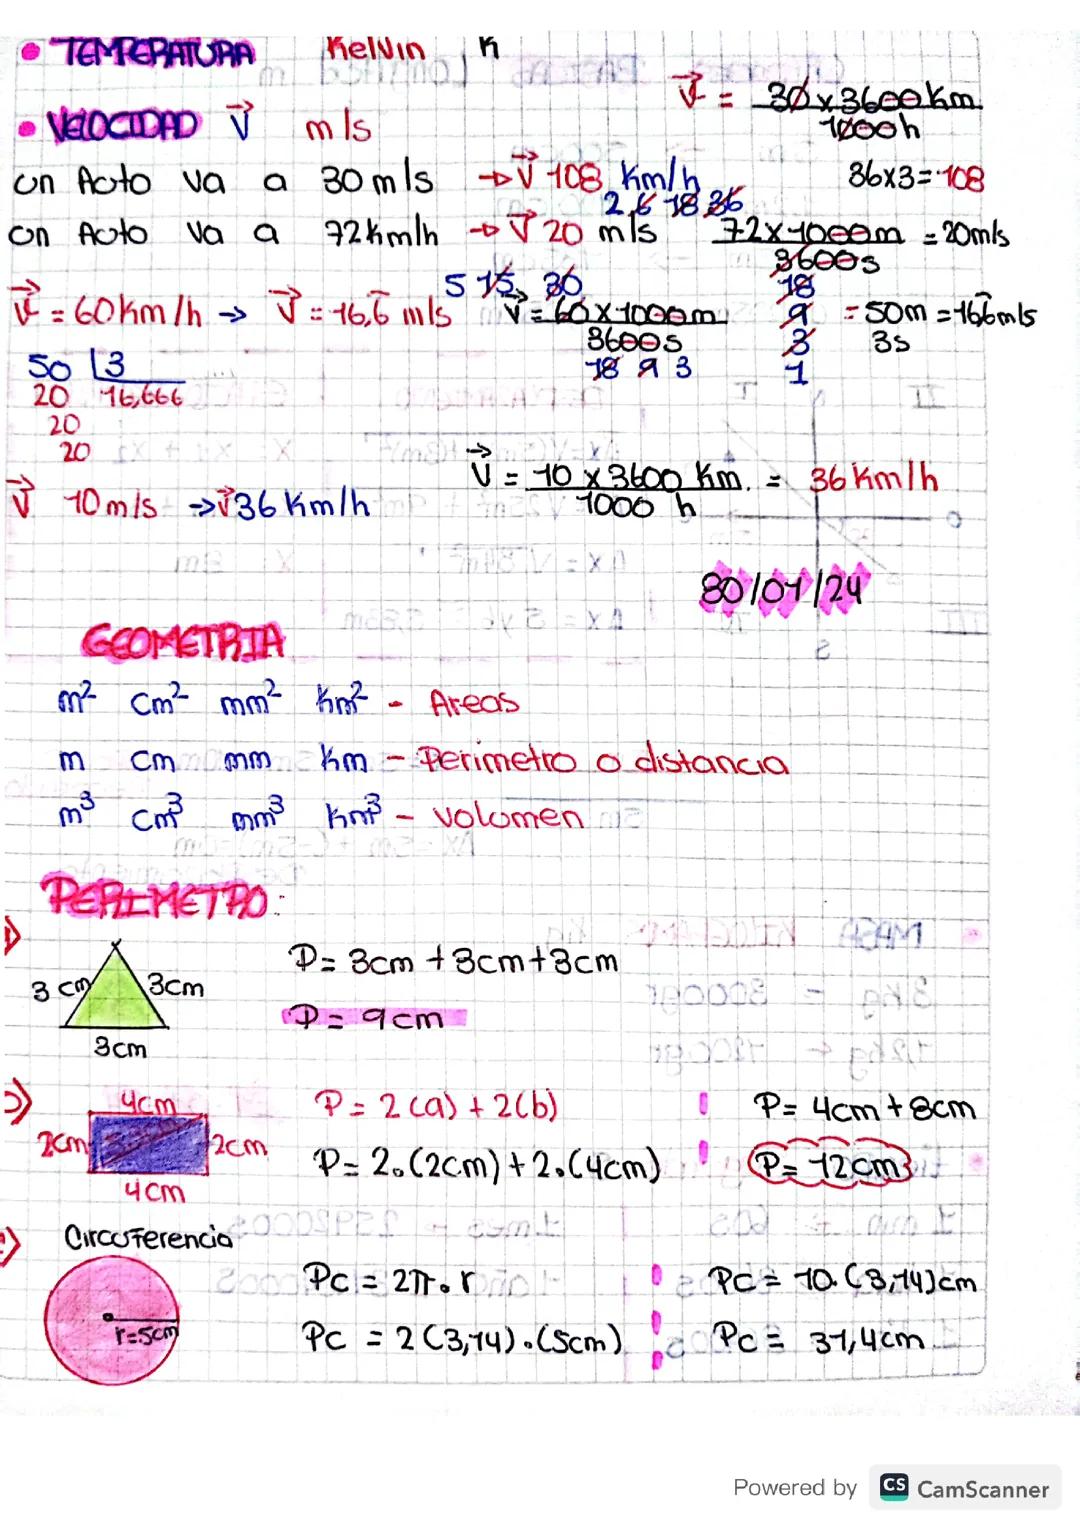 • TEMPERATURA Kelvin K
• VELOCIDAD V⃗ m/s
V⃗ = 30x3600Km / 1000h
un Auto va a 30 m/s → V⃗ 108 Km/h
36x3=108
un Auto va a 72Km/h → V⃗ 20 m/s
2,6 18 36
72x1000m / 3600s = 20m/s
18 9 3 1
V⃗ = 60Km/h → V⃗ = 16,6 m/s
5 15 30
V⃗ = 60x1000m / 3600s
18 9 3
= 50m / 3s = 166m/s
50 | 3
20 16,666
20
20
V⃗ 10m/s → V⃗ 36 Km/h
V⃗ = 10 x 3600 Km. / 1000 h = 36 Km/h
30/01/24
GEOMETRIA
m² Cm² mm² Km² - Areas
m Cm mm Km - Perimetro o distancia
m³ Cm³ mm³ Km³ - Volumen
PERIMETRO:
3 cm 3cm
3cm
P= 3cm + 3cm + 3cm
P= 9cm
4cm
2cm 2cm
4cm
P= 2(a) + 2(b)
P= 2.(2cm) + 2.(4cm)
P= 4cm + 8cm
P= 12cm
Circuferencia
r=5cm
Pc = 2π.r
Pc = 2(3,14).(5cm)
Pc = 10.(3,14)cm
Pc = 31,4cm
Powered by CS CamScanner